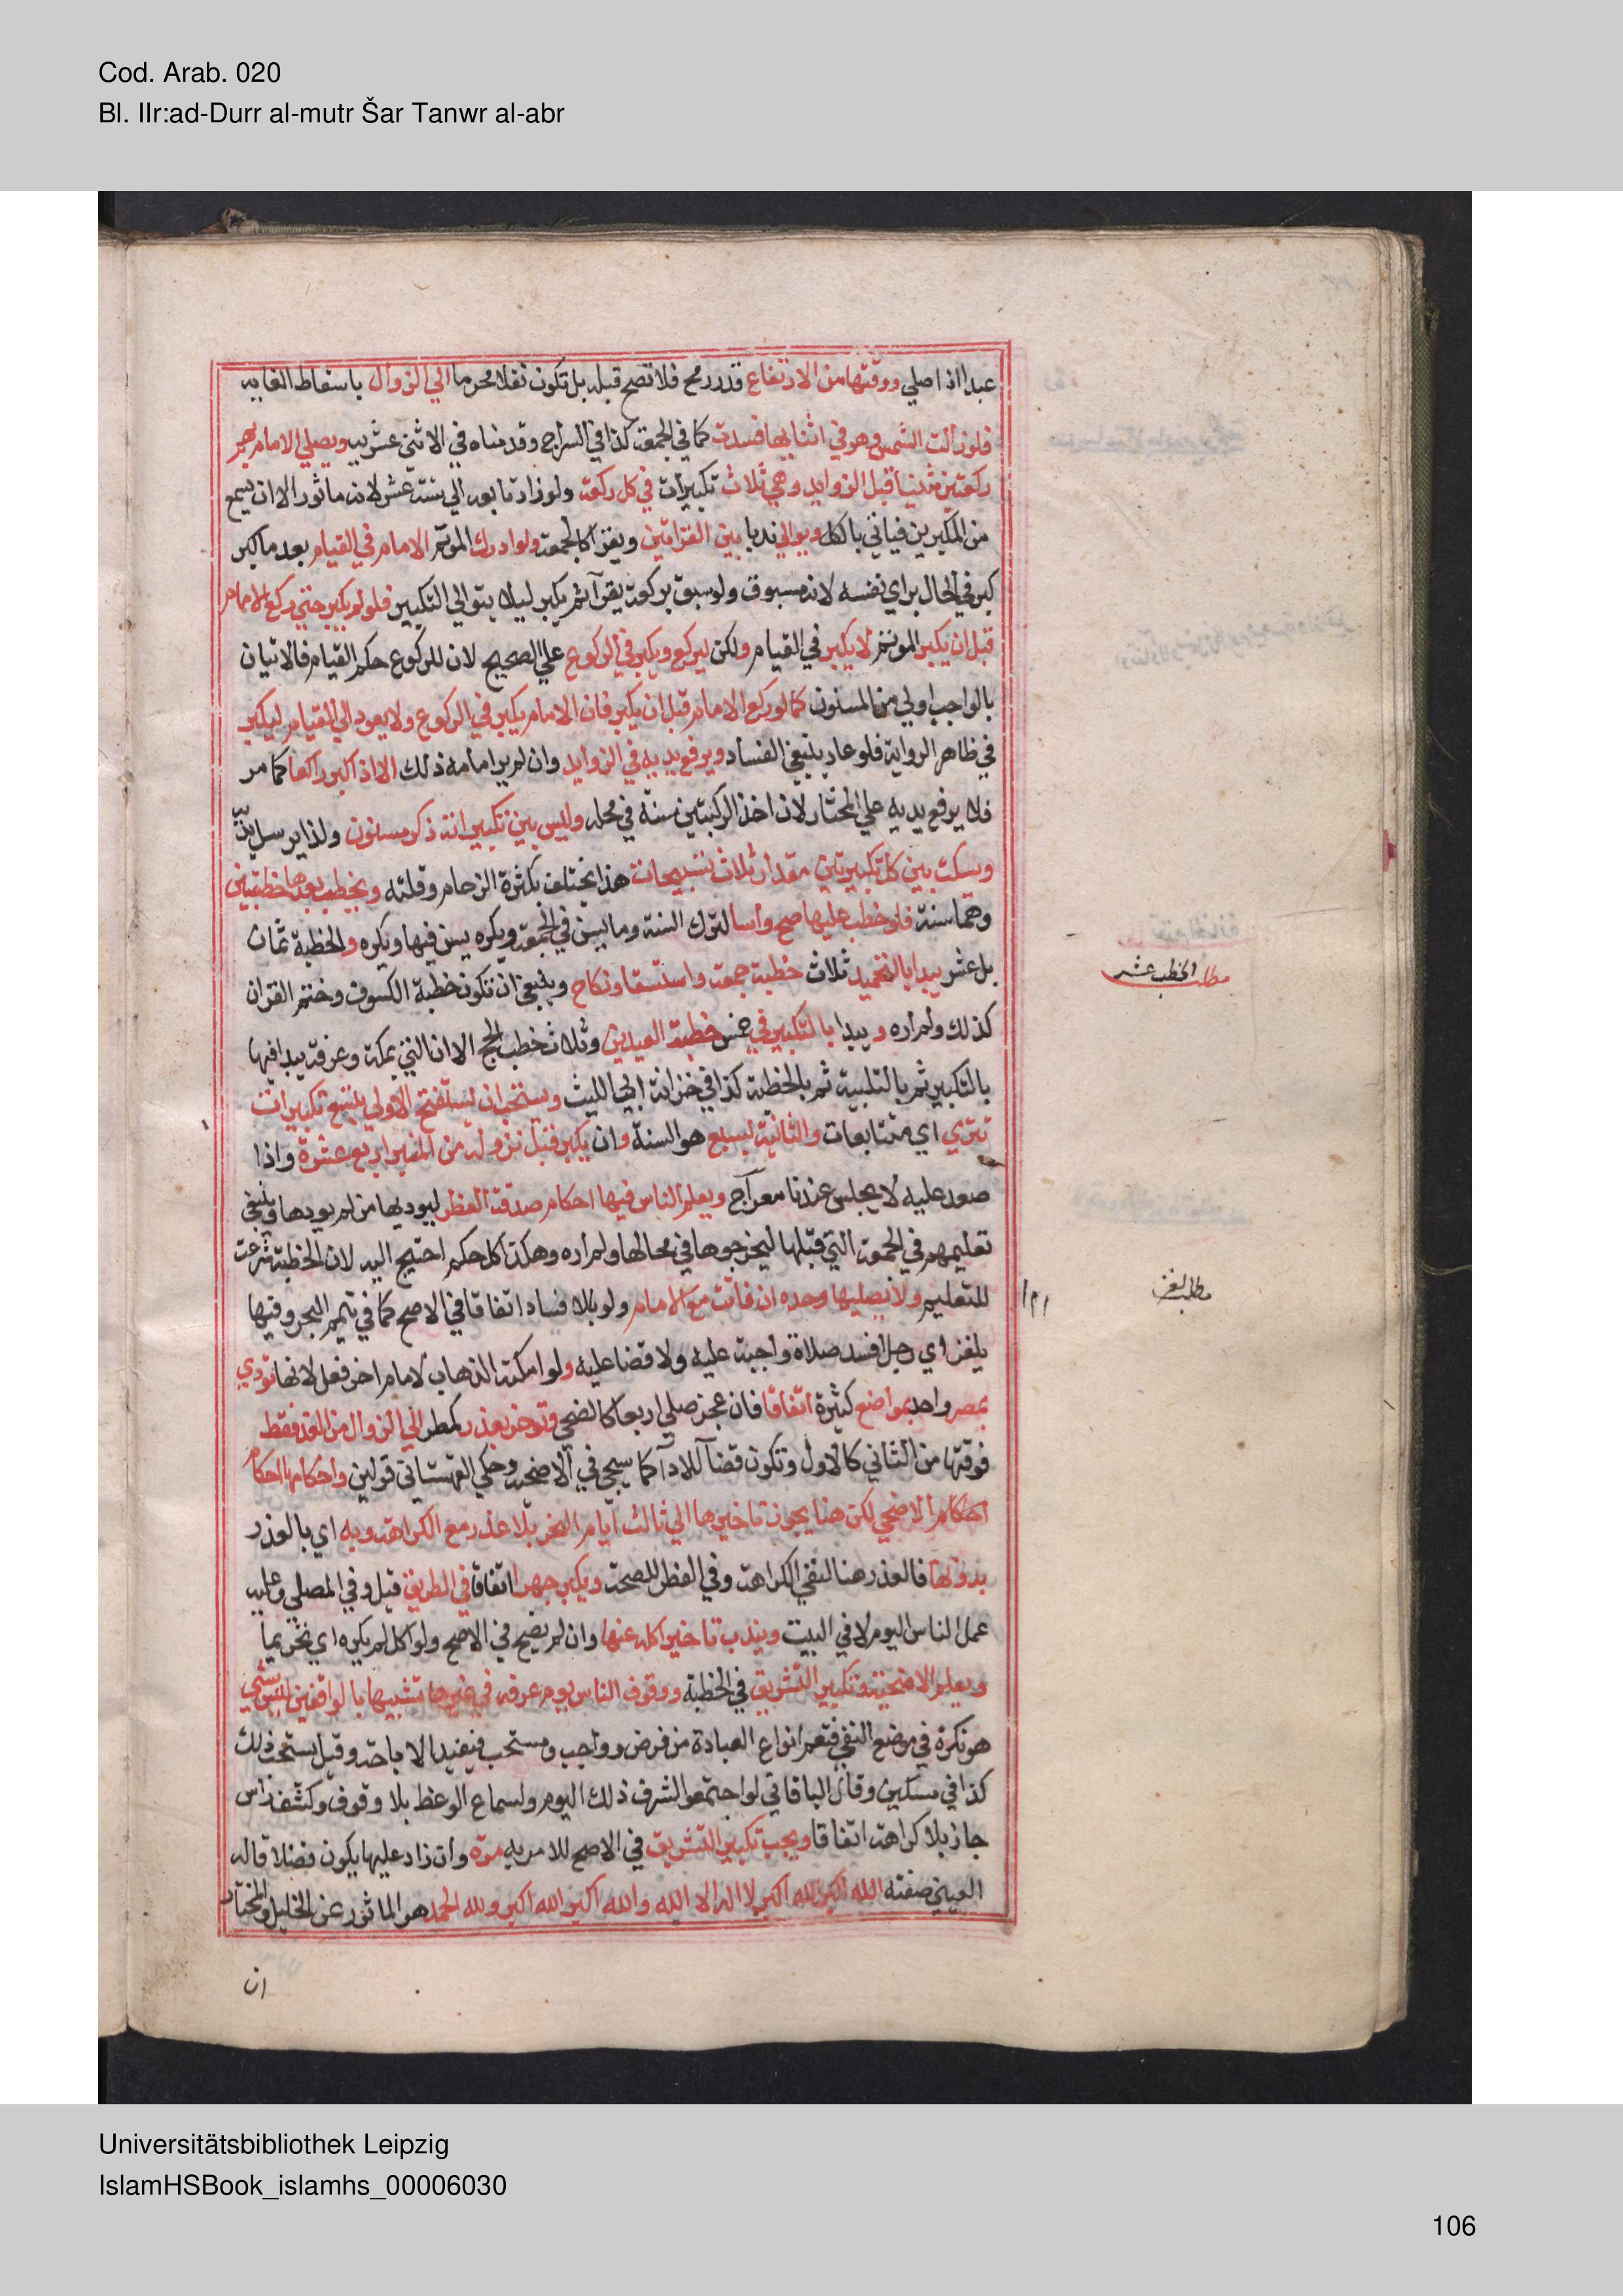 Cod. Arab. 020
Bl. IIr:ad-Durr al-mutr Šar Tanwr al-abr
عبدا اذا صلي ووقتها من الارتفاع قدر رمح فلا تصح قبله بل تكون نفلا محرما الي الزوال باسقاط الغايه
فلو زالت الشمس وهو في اثنايها فسدت كما في الجمعة كذا في السراج وقدمناه في الاثني عشريه ويصلي الامام بهم
ركعتين مثنيا قبل الزوايد وهي ثلاث تكبيرات في كل ركعة ولو زاد تابعه الي ستة عشر لانه ماثور الا ان يسمع
من المكبرين فياتي بالكل ويوالي ندبا بين القراتين ويقرا كالجمعة ولو ادرك الموتم الامام في القيام بعد ما كبر
كبر في الحال براي نفسه لانه مسبوق ولو سبق بركعة يقرآ ثم يكبر ليلا يتوالي التكبير فلو لم يكبر حتي ركع الامام
قبل ان يكبر الموتم لا يكبر في القيام ولكن يركع ويكبر في الركوع علي الصحيح لان للركوع حكم القيام فالاتيان
بالواجب اولي من المسنون كما لو ركع الامام قبل ان يكبر فان الامام يكبر في الركوع ولا يعود الي القيام ليكبر
في ظاهر الرواية فلو عاد ينبغي الفساد ويرفع يديه في الزوايد وان لم ير امامه ذلك الا اذا كبر راكعا كما مر
فلا يرفع يديه علي المختار لان اخذ الركبتين سنة في محله وليس بين تكبيراته ذكر مسنون ولذا يرسل يديه
ويسكت بين كل تكبيرتين مقدار ثلاث تسبيحات هذا يختلف بكثرة الزحام وقلته ويخطب بعدها خطبتين
وهما سنة فلو خطب عليها صح واسا لترك السنة وما يسن في الجمعة ويكره يسن فيها ويكره والخطبة ثمان
بل عشر يبدا بالتحميد ثلاث خطبة جمعة واستسقا ونكاح وينبغي ان تكون خطبة الكسوف وختم القران
كذلك ولم اره ويبدا بالتكبير في خمس خطبة العيدين وثلاث خطب الحج الا ان التي بمكة وعرفة يبدا فيها
بالتكبير ثم بالتلبية ثم بالخطبة كذا في خزانة ابي الليث ويستحب ان يستفتح الاولي بتسع تكبيرات
تتري اي متتابعات والثانية بسبع هو السنة وان يكبر قبل نزوله من المنبر اربع عشرة واذا
صعد عليه لا يجلس عندنا معراج ويعلم الناس فيها احكام صدقة الفطر ليوديها من لم يودها وينبغي
تعليمهم في الجمعة التي قبلها ليخرجوها في محالها ولم اره وهكذا كل حكم احتيج اليه لان الخطبة شرعت
للتعليم ولا يصليها وحده ان فاتت مع الامام ولو بلا فساد اتفاقا في الاصح كما في تيمم البحر وفيها
يلغز اي رجل افسد صلاة واجبة عليه ولا قضا عليه ولو امكنه الذهاب لامام اخر فعل لانها تودي
بمصر واحد بمواضع كثيرة اتفاقا فان عجز صلي اربعا كالضحي وتوخر بعذر كمطر الي الزوال من الغد فقط
فوقتها من الثاني كالاول وتكون قضآ للادآ كما سيجي في الاضحية وحكي القهستاني قولين واحكامها احكام
احكام الاضحي لكن هنا يجوز تاخيرها الي ثالث ايام النحر بلا عذر مع الكراهة وبه اي بالعذر
بدونها فالعذر هنا لنفي الكراهة وفي الفطر للصحة ويكبر جهرا اتفاقا في الطريق قيل وفي المصلي وعليه
عمل الناس اليوم لا في البيت ويندب تاخير اكله عنها وان لم يضح في الاصح ولو اكل لم يكره اي تحريما
ويعلم الاضحية وتكبير التشريق في الخطبة ووقوف الناس يوم عرفه في غيرها تشبيها بالواقفين ليس بشي
هو نكرة في موضع النفي فتعم انواع العبادة من فرض وواجب ومستحب فيفيد الاباحة وقيل يستحب ذلك
كذا في مسكين وقال الباقاني لو اجتمعوا لشرف ذلك اليوم ولسماع الوعظ بلا وقوف وكشف راس
جاز بلا كراهة اتفاقا ويجب تكبير التشريق في الاصح للامر به مرة وان زاد عليها يكون فضلا قاله
العيني صفته الله اكبر الله اكبر لا اله الا الله والله اكبر الله اكبر ولله الحمد هو الماثور عن الخليل والمختار
ان
مطلب الخطب عشر
مطلب لغز
Universitätsbibliothek Leipzig
IslamHSBook_islamhs_00006030
106